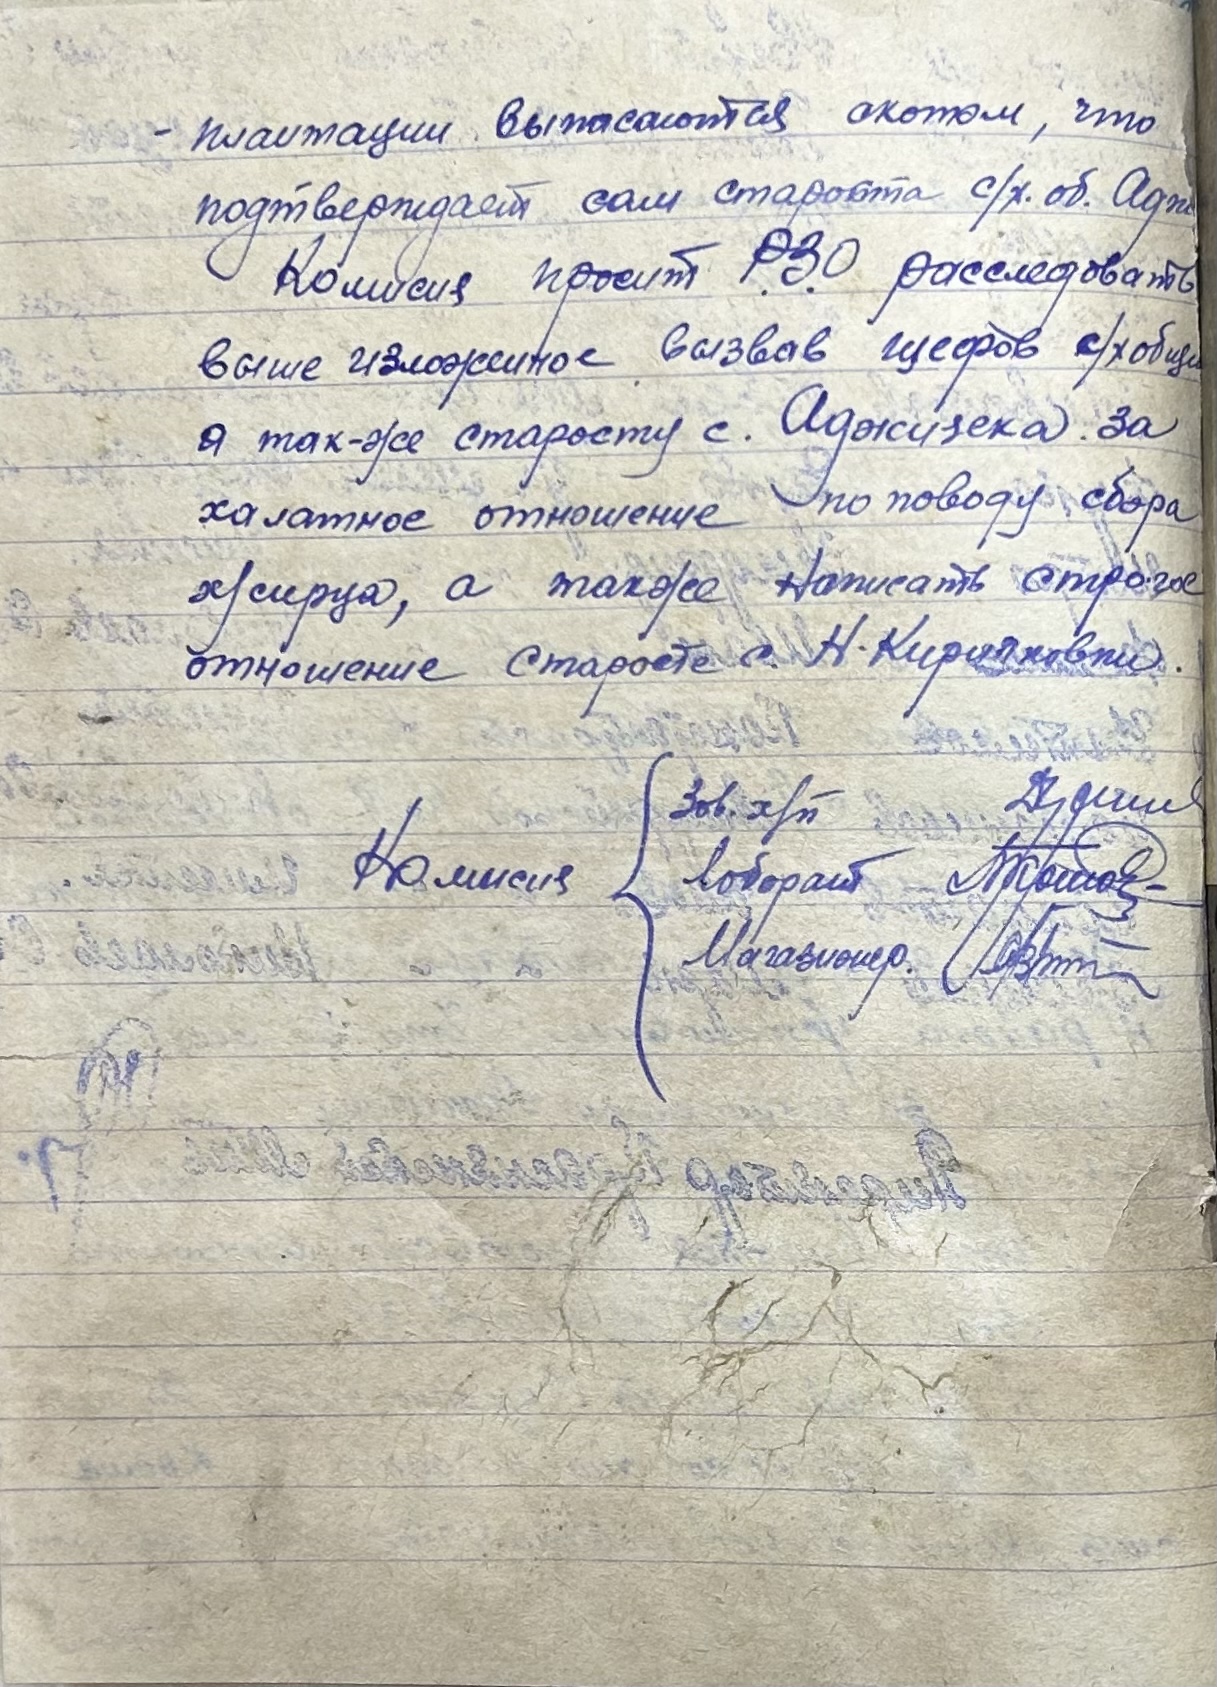 - плантации выпасаются скотом, что
подтверждает сам староста с/х. об. Адж
Комисия просит Р.З.О расследовать
выше изложенное вызвав шефов с/х общи
а так-же старосту с. Аджисека за
халатное отношение по поводу сбора
х/сырца, а также написать строгое
отношение старосте с. Н-Кириловки.
Зав. х/п
Комисия
Лоборант
Магазионер.